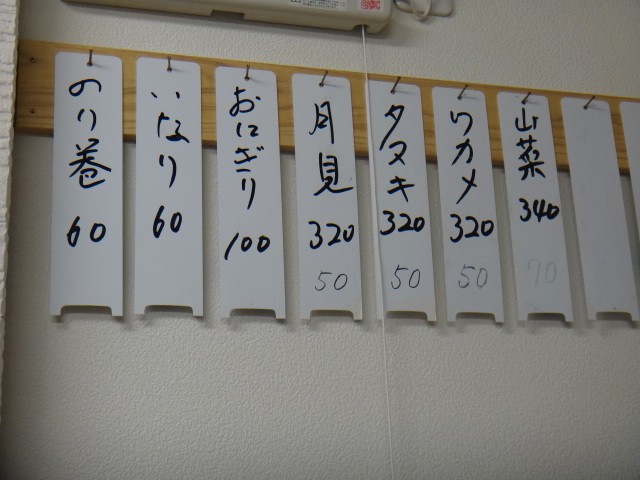 のり巻
60
いなり
60
おにぎり
100
月見
320
50
タヌキ
320
50
ワカメ
320
50
山菜
340
70